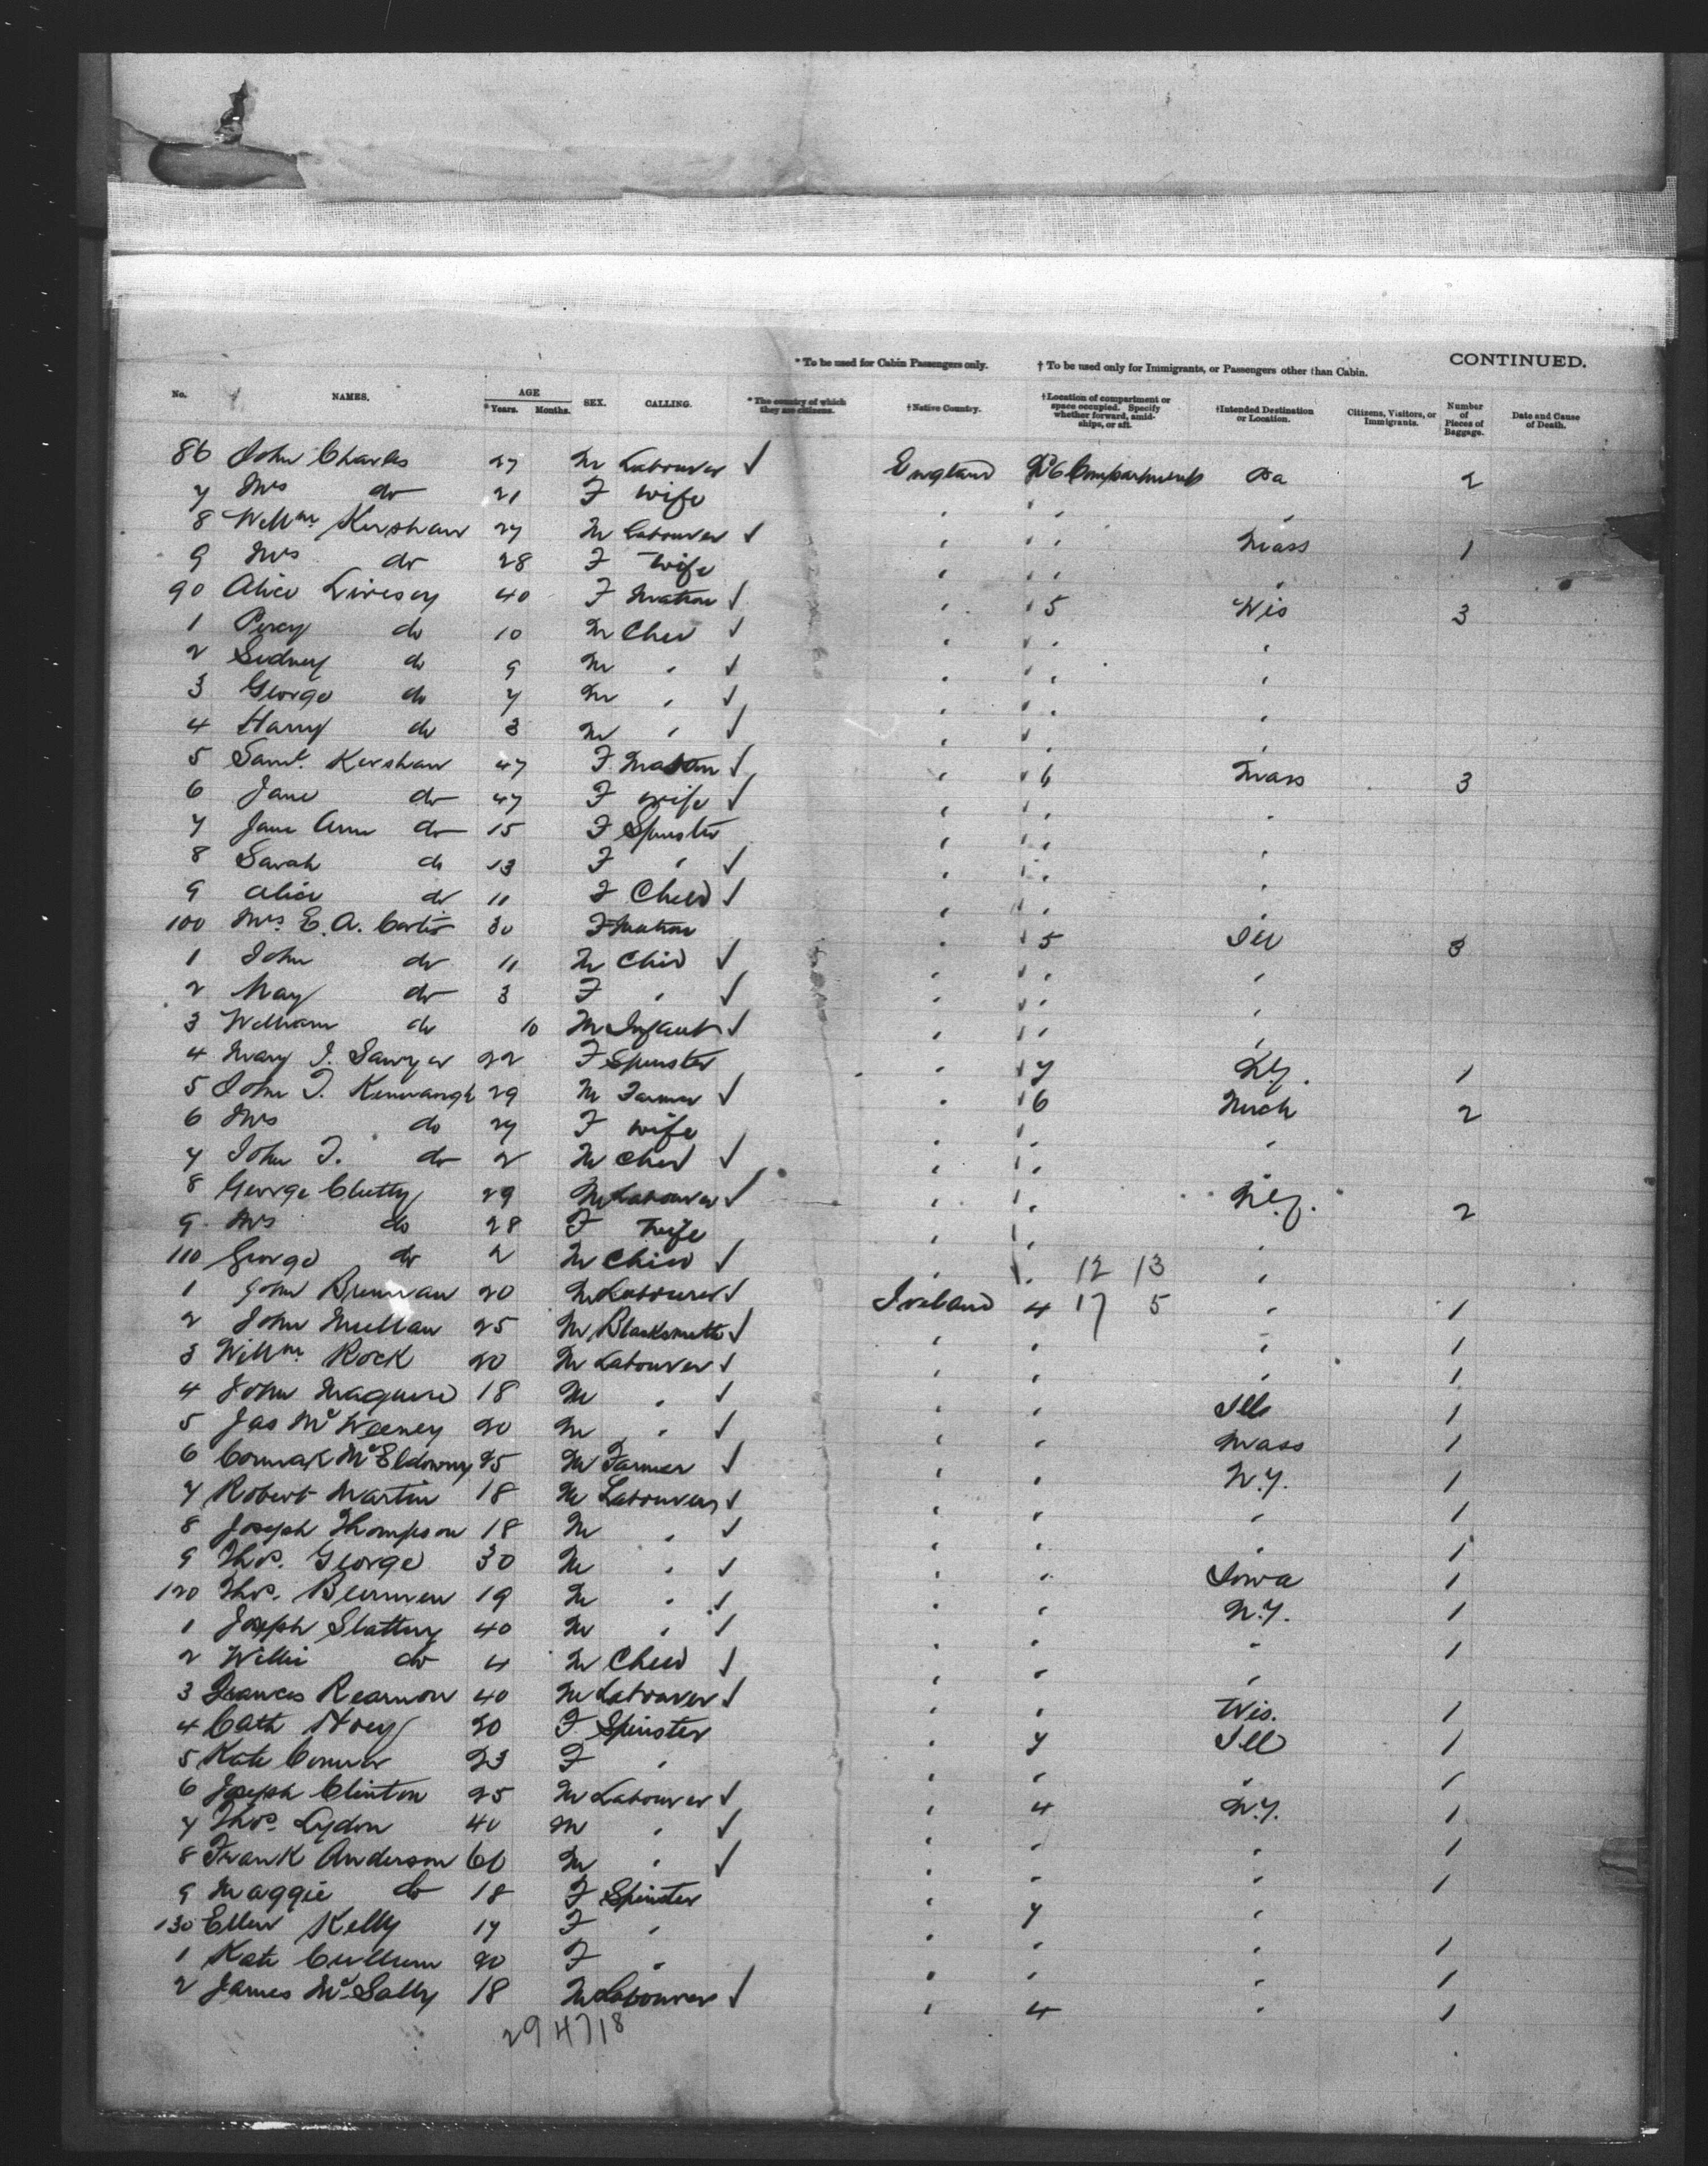 * To be used for Cabin Passengers only. † To be used only for Immigrants, or Passengers other than Cabin. CONTINUED.
No. NAMES. AGE * Years. Months. SEX. CALLING. * The country of which they are citizens. † Native Country. † Location of compartment or space occupied. Specify whether forward, amidships, or aft. † Intended Destination or Location. Citizens, Visitors, or Immigrants. Number of Pieces of Baggage. Date and Cause of Death.
86 John Charles 27 M Labourer ✓ England 6 Compartment Pa 2
7 Mrs do 21 F wife
8 Willm Kershaw 27 M Labourer ✓ Mass 1
9 Mrs do 28 F wife
90 Alice Livesey 40 F Matron ✓ 5 Wis 3
1 Percy do 10 M Child ✓
2 Sidney do 9 M " ✓
3 George do 7 M " ✓
4 Harry do 3 M " ✓
5 Saml. Kershaw 47 F ✓ 6 Mass 3
6 Jane do 47 F wife ✓
7 Jane Ann do 15 F Spinster
8 Sarah do 13 F " ✓
9 Alice do 11 F Child ✓
100 Mrs E. A. 30 F Matron 5 Ill 3
1 John do 11 M Child ✓
2 May do 3 F " ✓
3 William do 10 M Infant ✓
4 Mary J. Sawyer 22 F Spinster 7 1
5 John T. 29 M Farmer ✓ 6 Mich 2
6 Mrs do 27 F wife
7 John T. do 2 M Child ✓
8 George 29 M Labourer ✓ N.Y. 2
9 Mrs do 28 F wife
110 George do 2 M Child ✓ 12 13
1 John Brennan 20 M Labourer ✓ Ireland 4 17 5 " 1
2 John Mullan 25 M Blacksmith ✓ " 1
3 Willm Rock 20 M Labourer ✓ " 1
4 John Maguire 18 M " ✓ Ill 1
5 Jas McWeeney 20 M " ✓ Mass 1
6 Cormak McEldowny M Farmer ✓ N.Y. 1
7 Robert Martin 18 M Labourer ✓ " 1
8 Joseph Thompson 18 M " ✓ " 1
9 Thos. George 30 M " ✓ Iowa 1
120 Thos. 19 M " ✓ N.Y. 1
1 Joseph Slattery 40 M " ✓ " 1
2 Willie do 4 M Child ✓ "
3 Frances 40 M Labourer ✓ Wis. 1
4 Cath Hoey 20 F Spinster 7 Ill 1
5 Kate Connor 23 F " " 1
6 Joseph Clinton 25 M Labourer ✓ 4 N.Y. 1
7 Thos. Lydon 40 M " ✓ " 1
8 Frank Anderson 60 M " ✓ " 1
9 Maggie do 18 F Spinster 7 "
130 Ellen Kelly 17 F " " 1
1 Kate Cullum 20 F " " 1
2 James McSally 18 M Labourer ✓ 4 " 1
294718